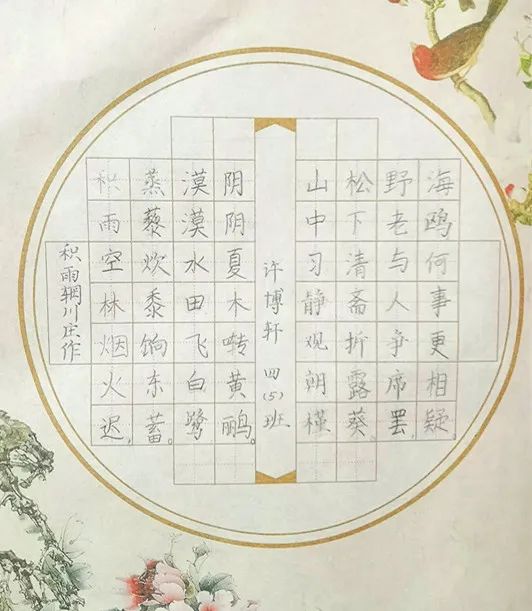 积雨辋川庄作
积雨空林烟火迟,
蒸藜炊黍饷东蓄。
漠漠水田飞白鹭,
阴阴夏木啭黄鹂。
许博轩 四(5)班
山中习静观朝槿,
松下清斋折露葵。
野老与人争席罢,
海鸥何事更相疑。